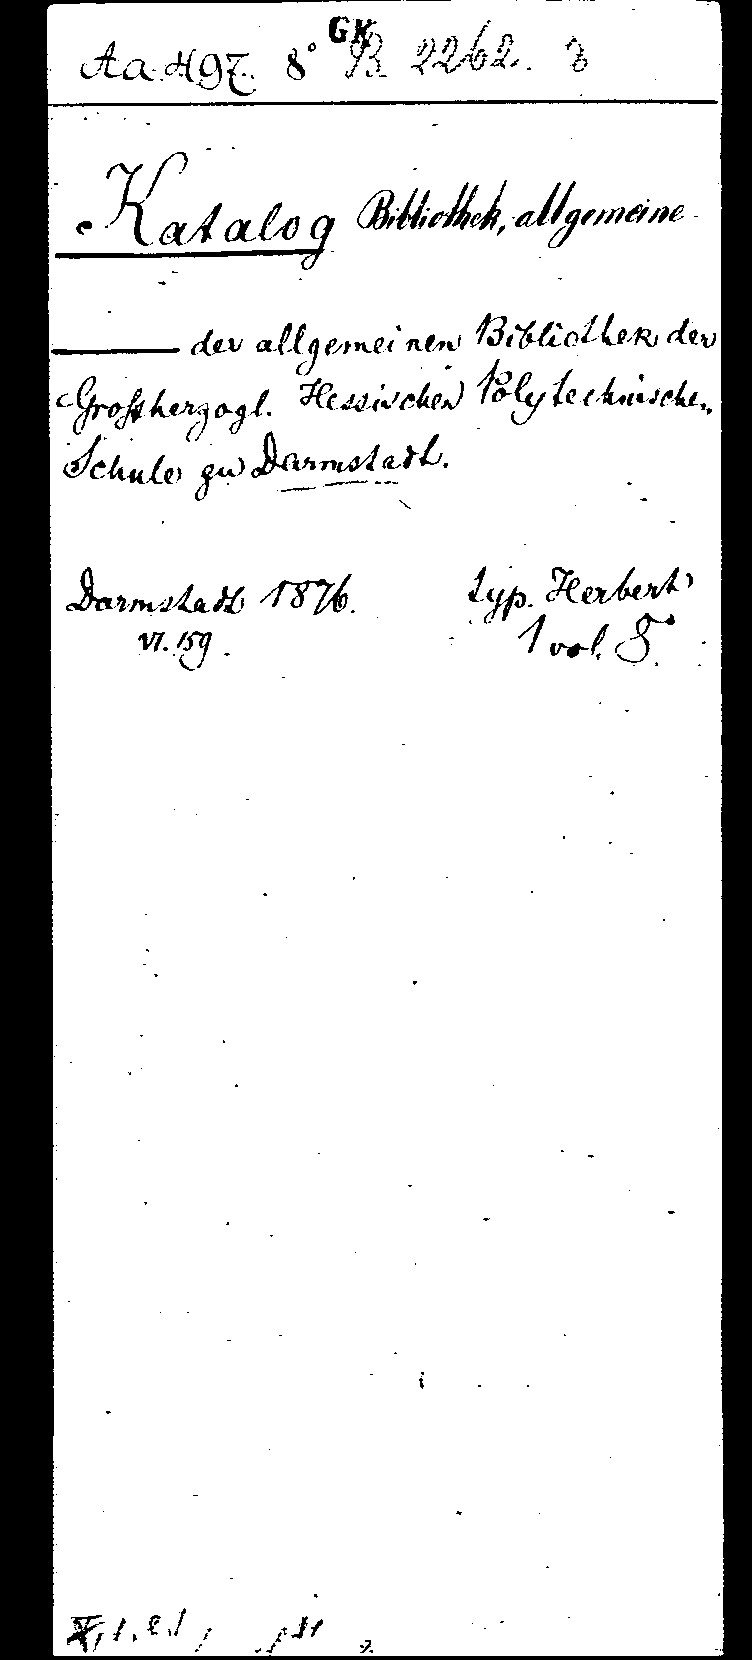 GK
Aa 497. 8° B. 2262. 3
Katalog Bibliothek, allgemeine
——— der allgemeinen Bibliothek der
Großherzogl. Hessischen Polytechnischen
Schule zu Darmstadt.
Darmstadt 1876. typ. Herbert
VI. 159. 1 vol. 8°